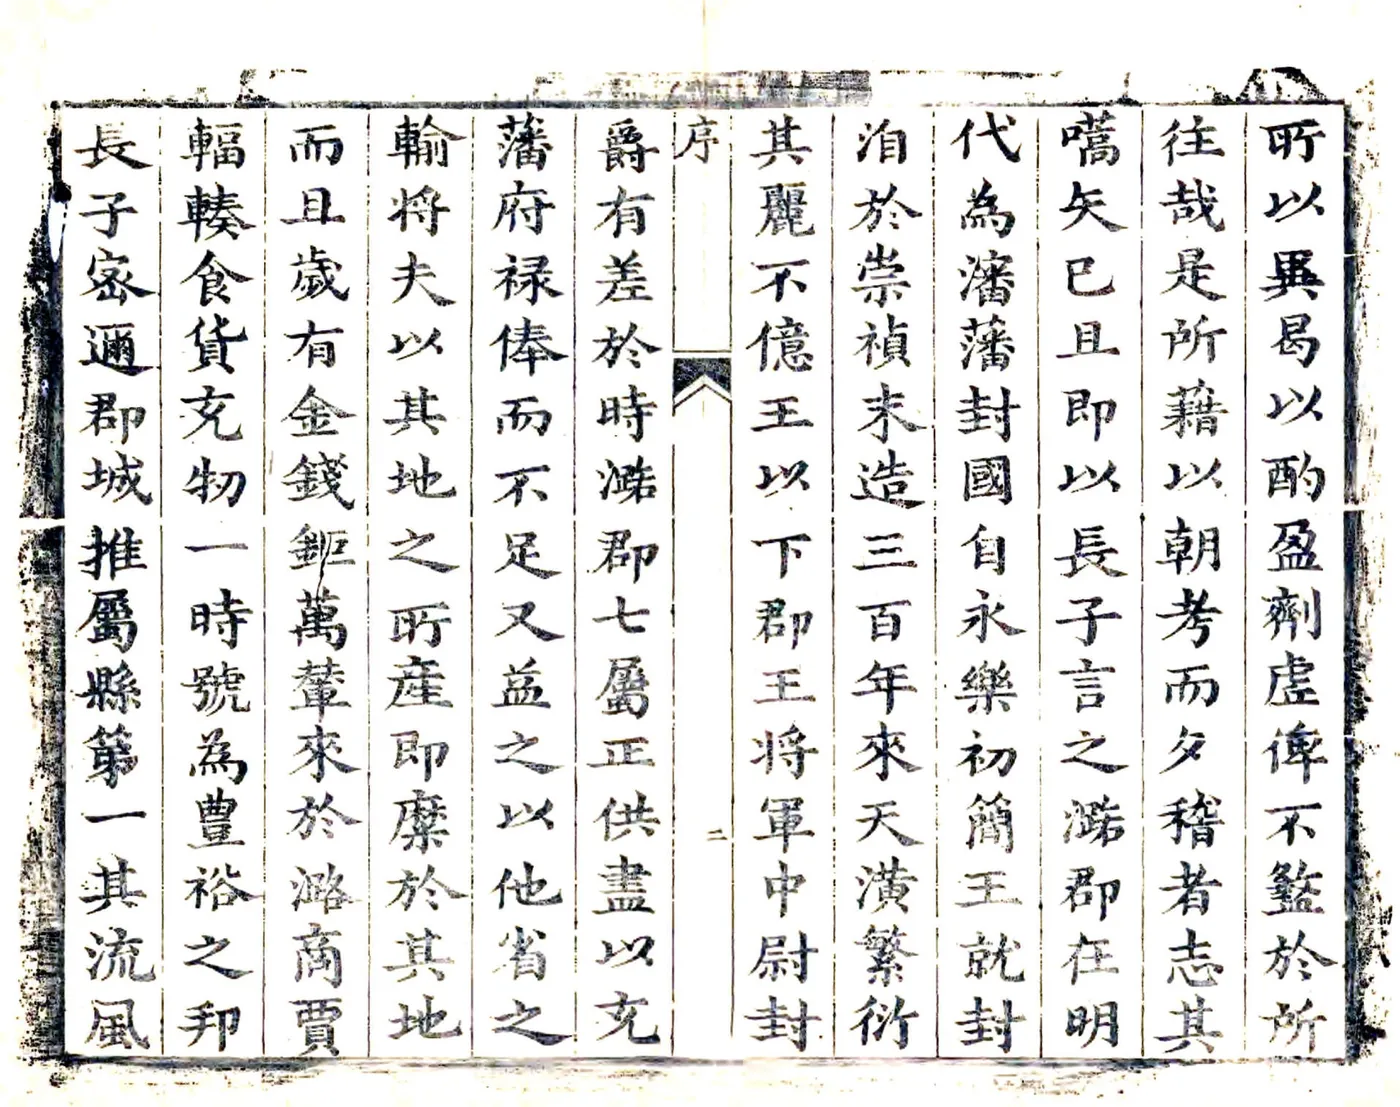 所以異曷以酌盈劑虛俾不盭於所
往哉是所藉以朝考而夕稽者志其
嚆矢已且即以長子言之潞郡在明
代為瀋藩封國自永樂初簡王就封
洎於崇禎末造三百年來天潢繁衍
其麗不億王以下郡王将軍中尉封
序
二
爵有差於時潞郡七屬正供盡以充
藩府禄俸而不足又益之以他省之
輸将夫以其地之所產即縻於其地
而且歲有金錢鉅萬輦來於潞商賈
輻輳食貨充牣一時號為豐裕之邦
長子密邇郡城推屬縣第一其流風